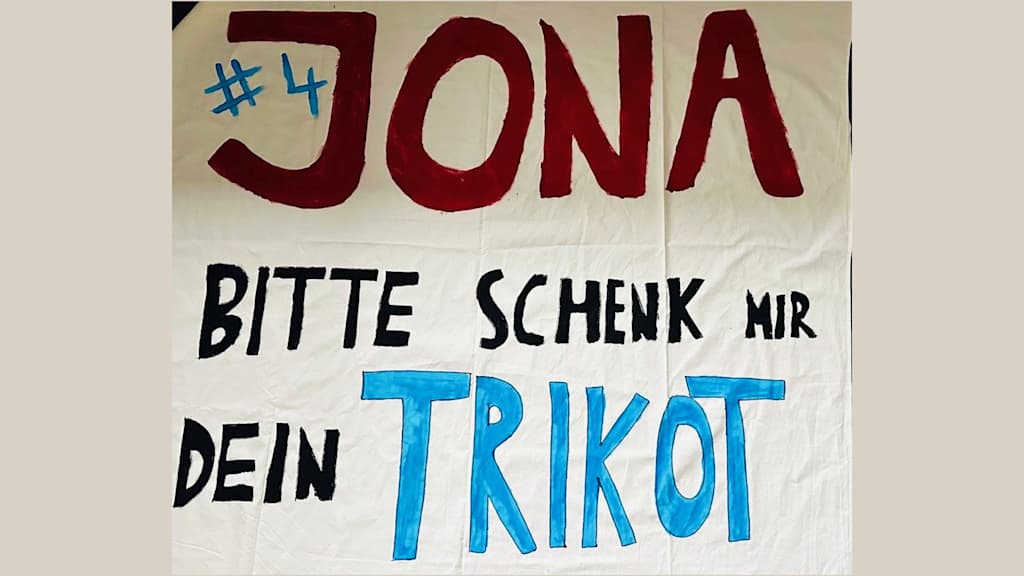 JONA
#4
BITTE SCHENK MIR
DEIN TRIKOT